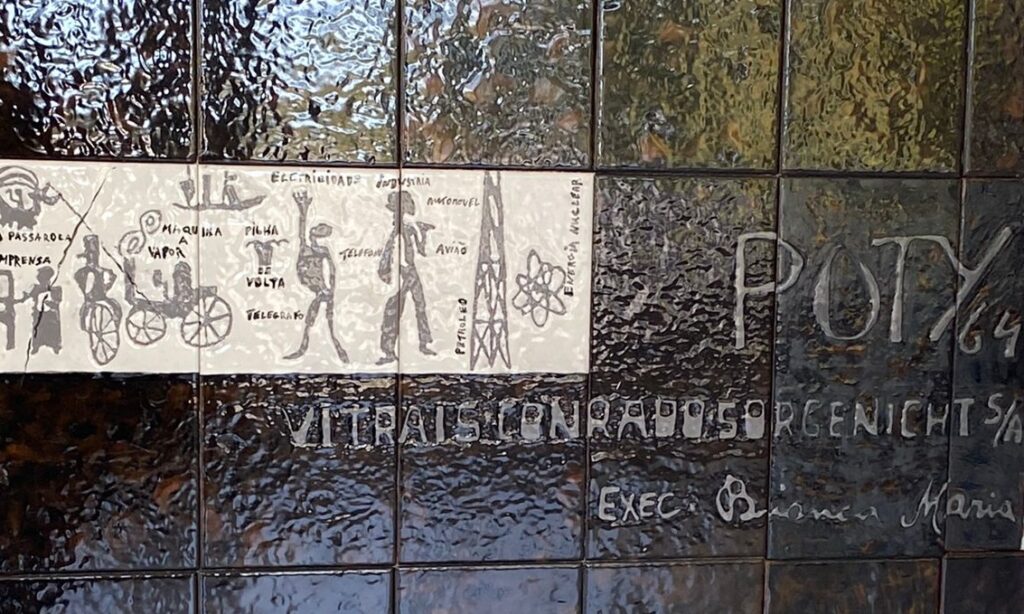 PASSAROLA
IMPRENSA
MÁQUINA
A
VAPOR
ELETRICIDADE
PILHA
DE
VOLTA
TELEGRAFO
INDUSTRIA
TELEFONE
AUTOMOVEL
AVIÃO
PETROLEO
ENERGIA NUCLEAR
POTY
64
VITRAIS CONRADO SORGENICHT S/A
EXEC. Bianca Maria